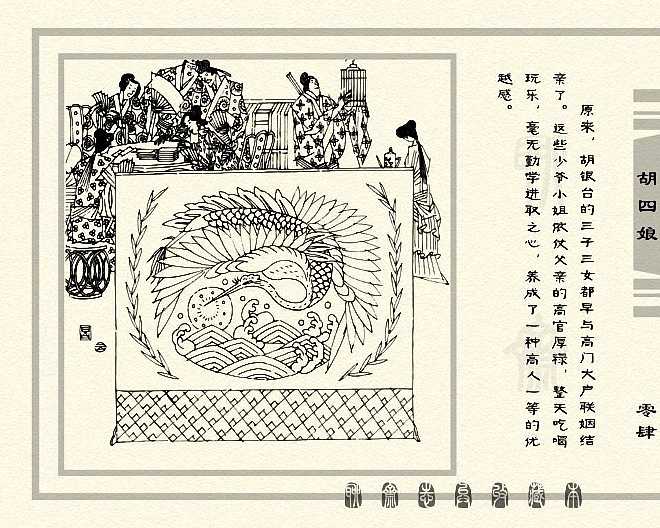 原来，胡银台的三子三女都早与高门大户联姻结
亲了。这些少爷小姐依仗父亲的高官厚禄，整天吃喝
玩乐，毫无勤学进取之心，养成了一种高人一等的优
越感。
胡四娘
零肆